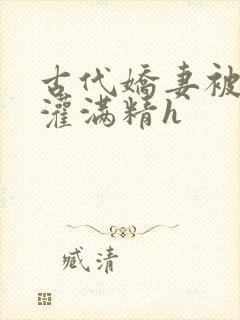 古代嬌妻被
灌滿精h
臧清